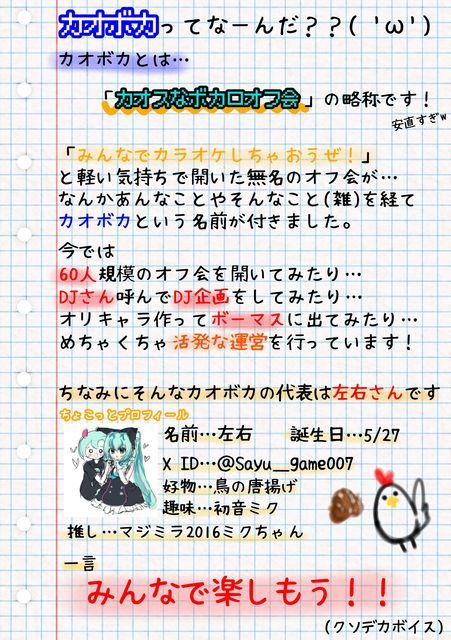 カオボカってなーんだ？？( 'ω')
カオボカとは…
「カオスなボカロオフ会」の略称です！
安直すぎw
「みんなでカラオケしちゃおうぜ！」
と軽い気持ちで開いた無名のオフ会が…
なんかあんなことやそんなこと(雑)を経て
カオボカという名前が付きました。
今では
60人規模のオフ会を開いてみたり…
DJさん呼んでDJ企画をしてみたり…
オリキャラ作ってボーマスに出てみたり…
めちゃくちゃ活発な運営を行っています！
ちなみにそんなカオボカの代表は左右さんです
ちょこっとプロフィール
名前…左右　誕生日…5/27
X ID…@Sayu__game007
好物…鳥の唐揚げ
趣味…初音ミク
推し…マジミラ2016ミクちゃん
一言
みんなで楽しもう！！
(クソデカボイス)